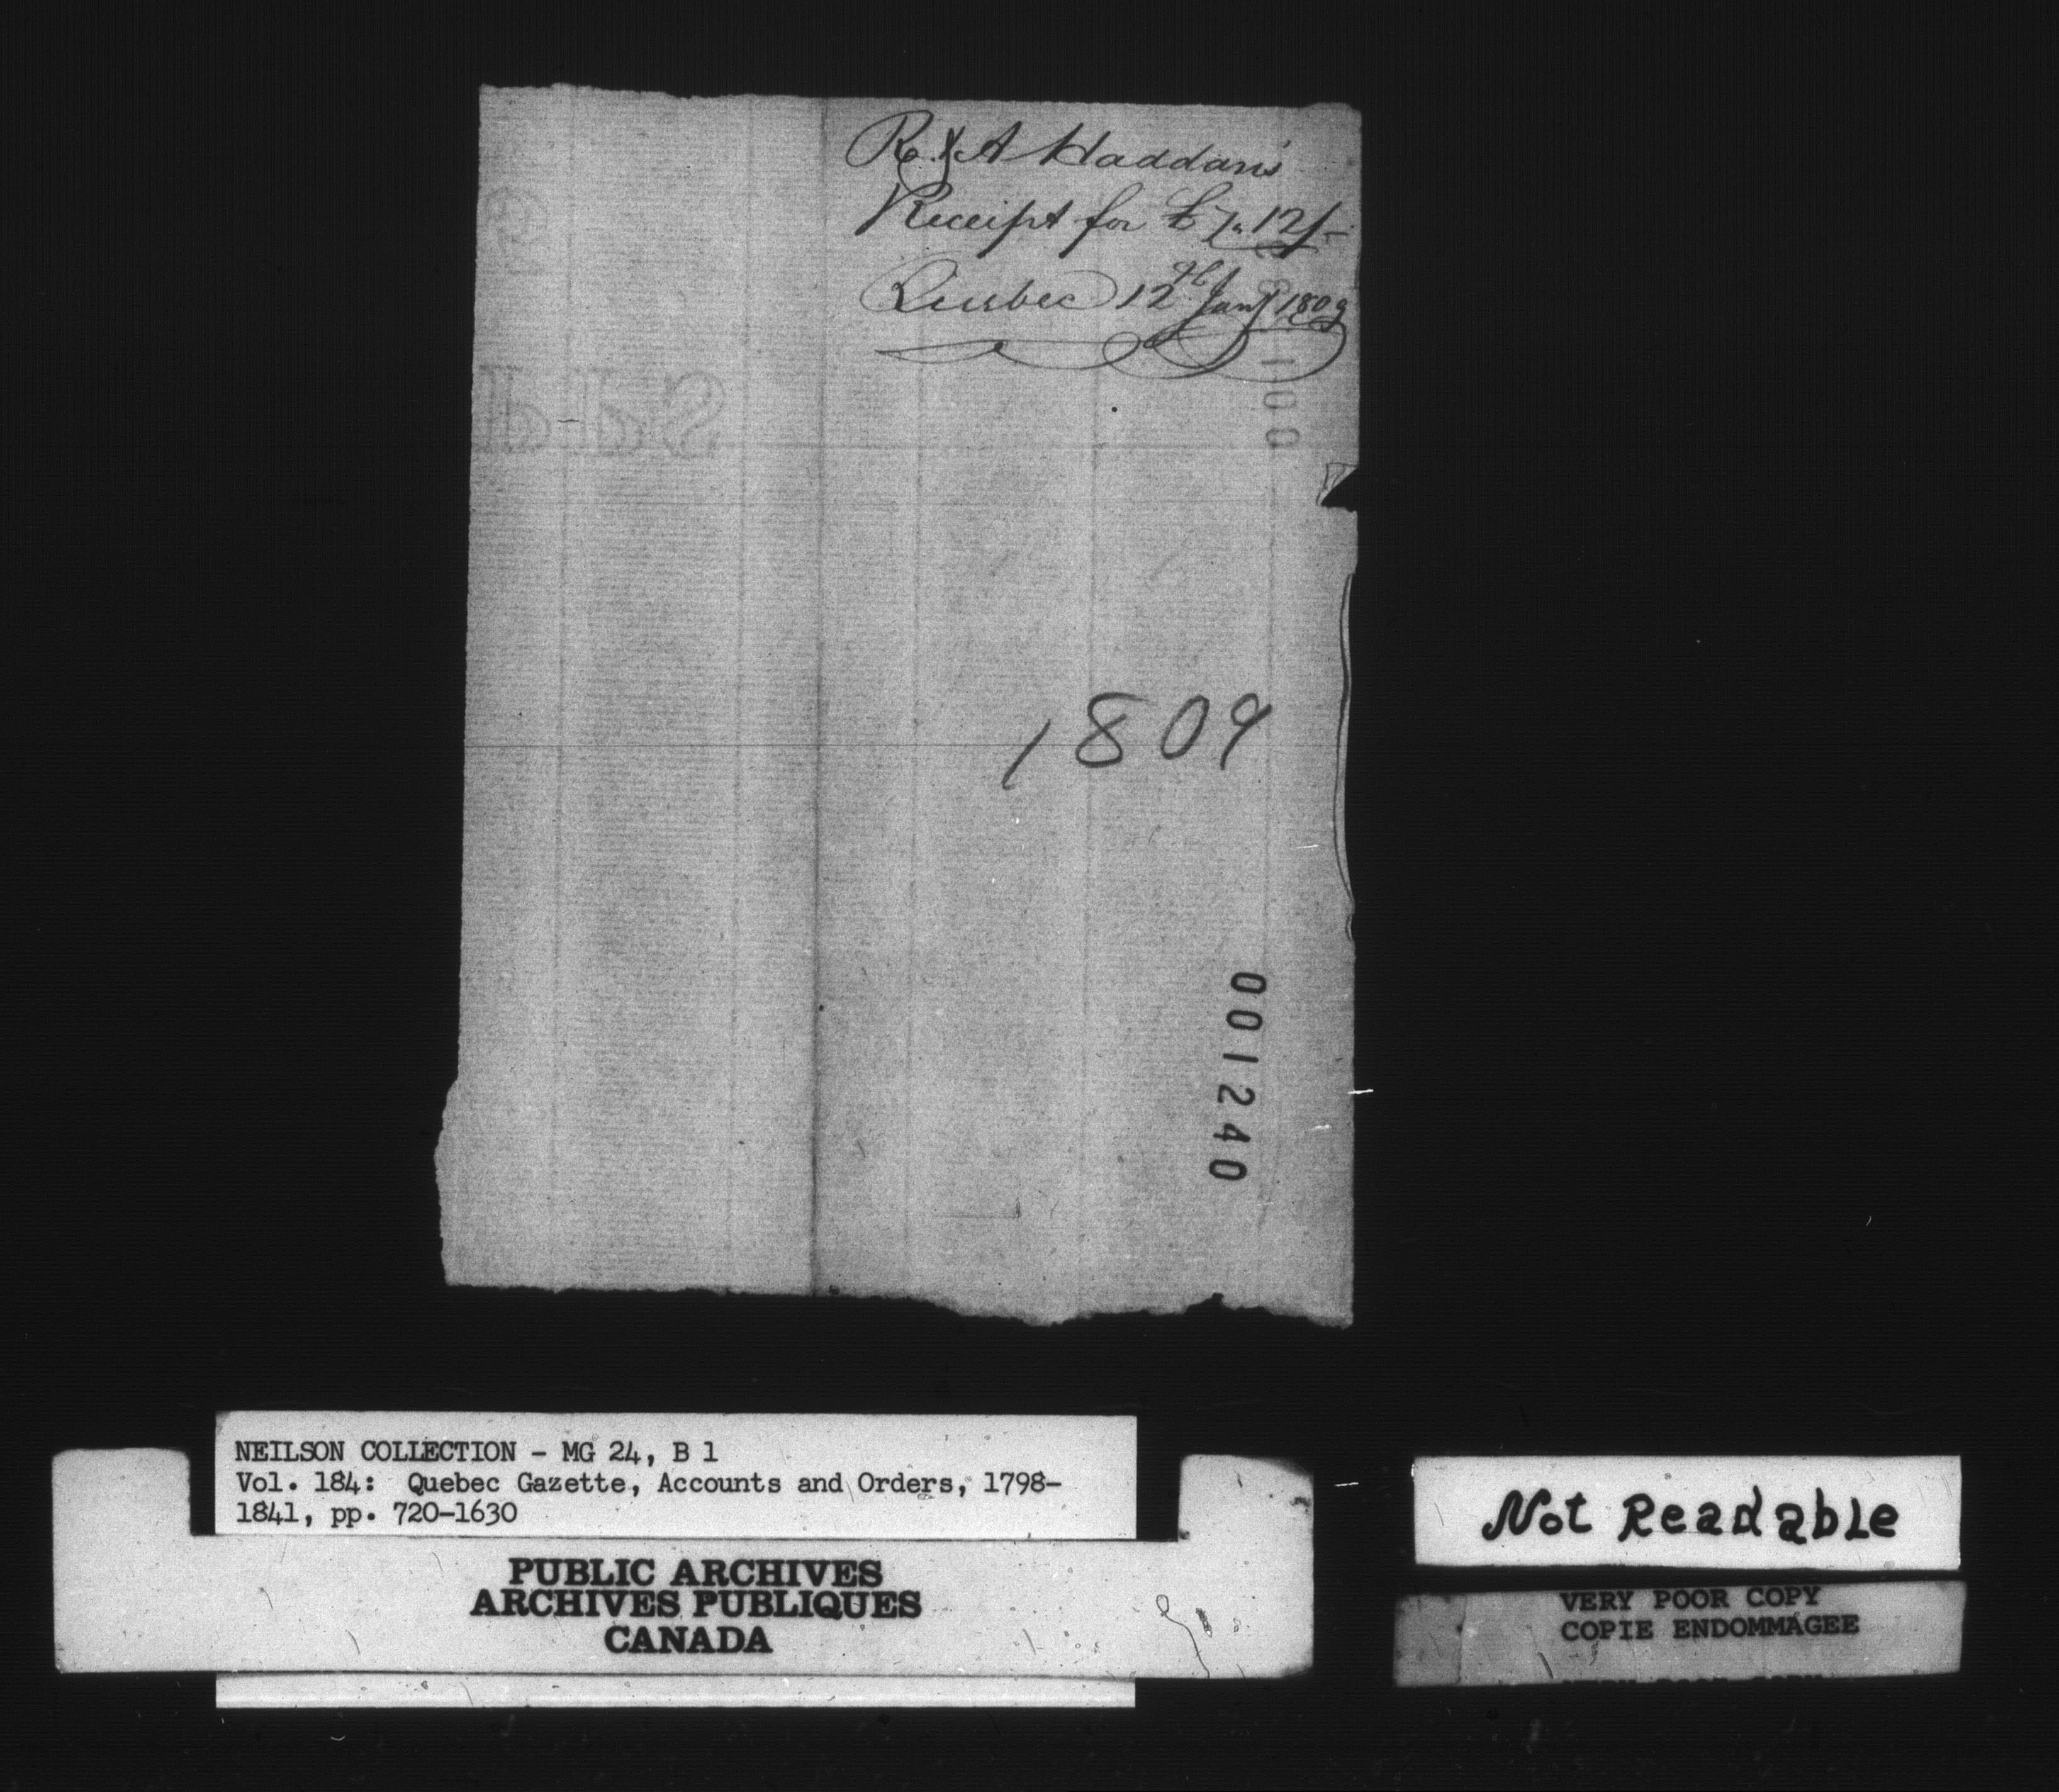 Ro. & A Haddan's
Receipt for £7.. 12/-
Quebec 12th Jany 1809
1809
001240
NEILSON COLLECTION - MG 24, B 1
Vol. 184: Quebec Gazette, Accounts and Orders, 1798-
1841, pp. 720-1630
PUBLIC ARCHIVES
ARCHIVES PUBLIQUES
CANADA
Not Readable
VERY POOR COPY
COPIE ENDOMMAGEE